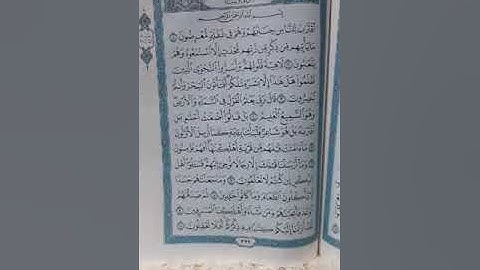 بِسْمِ اللَّهِ الرَّحْمَٰنِ الرَّحِيمِ
اقْتَرَبَ لِلنَّاسِ حِسَابُهُمْ وَهُمْ فِي غَفْلَةٍ مُّعْرِضُونَ ١
مَا يَأْتِيهِم مِّن ذِكْرٍ مِّن رَّبِّهِم مُّحْدَثٍ إِلَّا اسْتَمَعُوهُ وَهُمْ
يَلْعَبُونَ ٢ لَاهِيَةً قُلُوبُهُمْ وَأَسَرُّوا النَّجْوَى الَّذِينَ
ظَلَمُوا هَلْ هَٰذَا إِلَّا بَشَرٌ مِّثْلُكُمْ أَفَتَأْتُونَ السِّحْرَ وَأَنتُمْ
تُبْصِرُونَ ٣ قَالَ رَبِّي يَعْلَمُ الْقَوْلَ فِي السَّمَاءِ وَالْأَرْضِ
وَهُوَ السَّمِيعُ الْعَلِيمُ ٤ بَلْ قَالُوا أَضْغَاثُ أَحْلَامٍ بَلِ
افْتَرَاهُ بَلْ هُوَ شَاعِرٌ فَلْيَأْتِنَا بِآيَةٍ كَمَا أُرْسِلَ الْأَوَّلُونَ
٥ مَا آمَنَتْ قَبْلَهُم مِّن قَرْيَةٍ أَهْلَكْنَاهَا أَفَهُمْ يُؤْمِنُونَ
٦ وَمَا أَرْسَلْنَا قَبْلَكَ إِلَّا رِجَالًا نُّوحِي إِلَيْهِمْ فَاسْأَلُوا أَهْلَ
الذِّكْرِ إِن كُنتُمْ لَا تَعْلَمُونَ ٧ وَمَا جَعَلْنَاهُمْ جَسَدًا
لَّا يَأْكُلُونَ الطَّعَامَ وَمَا كَانُوا خَالِدِينَ ٨ ثُمَّ صَدَقْنَاهُمُ
الْوَعْدَ فَأَنجَيْنَاهُمْ وَمَن نَّشَاءُ وَأَهْلَكْنَا الْمُسْرِفِينَ ٩
لَقَدْ أَنزَلْنَا إِلَيْكُمْ كِتَابًا فِيهِ ذِكْرُكُمْ أَفَلَا تَعْقِلُونَ ١٠
٣٢٢